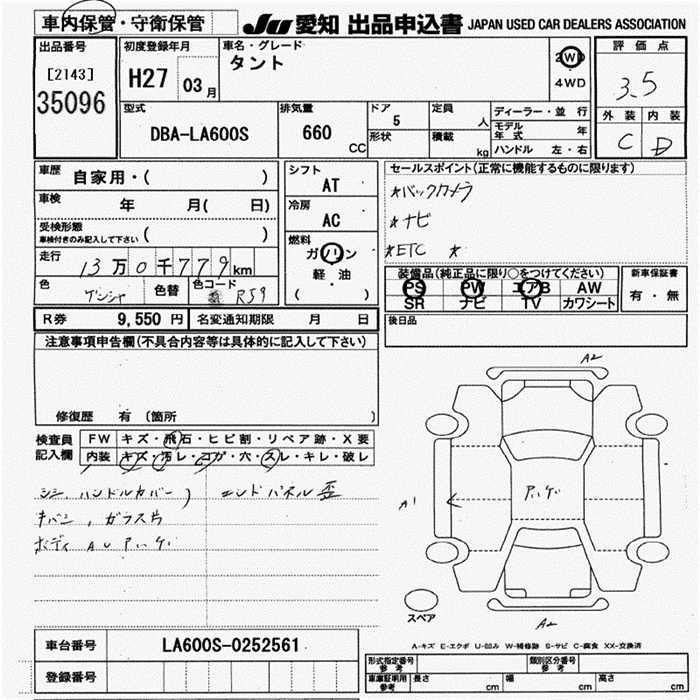 車内保管・守衛保管
JU 愛知 出品申込書 JAPAN USED CAR DEALERS ASSOCIATION
出品番号
[2143]
35096
初度登録年月
H27 03月
車名・グレード
タント
2WD
4WD
評価点
3.5
外装 内装
C D
型式
DBA-LA600S
排気量
660 CC
ドア 5
形状
定員 人
積載 kg
ディーラー・並行
モデル年式 年
ハンドル 左・右
車歴 自家用・( )
車検 年 月( 日)
受検形態
車検付きのみ記入して下さい ( )
走行 13万0千779km
色 色替 色コード R59
シフト
AT
冷房
AC
燃料
ガソリン
軽・油
( )
セールスポイント(正常に機能するものに限ります)
*バックカメラ
*ナビ
*ETC *
装備品(純正品に限り○をつけてください)
PS PW エアB AW
SR ナビ TV カワシート
新車保証書
有・無
R券 9,550円 名変通知期限 月 日
後日品
注意事項申告欄(不具合内容等は具体的に記入して下さい)
修復歴 有 (箇所 )
検査員記入欄
FW キズ・飛石・ヒビ割・リペア跡・X要
内装 キズ・汚レ・コガ・穴・スレ・キレ・破レ
ハンドルカバー エンドパネル歪
ガラス片
ボディ AU
A2
A1
A2
スペア
A-キズ E-エクボ U-凹み W-補修跡 S-サビ C-腐食 XX-交換済
車台番号 LA600S-0252561
登録番号
形式指定番号 参考 類別区分番号 参考
車庫証明用 参考 長さ cm 幅 cm 高さ cm